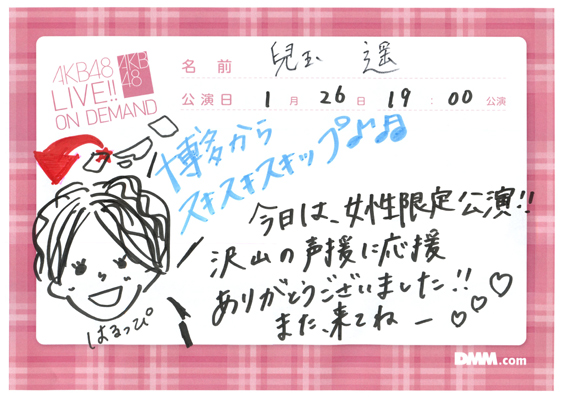 AKB48
LIVE!!
ON DEMAND
AKB
48
名前 兒玉 遥
公演日 1月26日 19:00公演
博多から
スキスキスキップ♪♬
今日は、女性限定公演!!
沢山の声援に応援
ありがとうございました!!
また、来てねー♡♡♡
はるっぴ
DMM.com